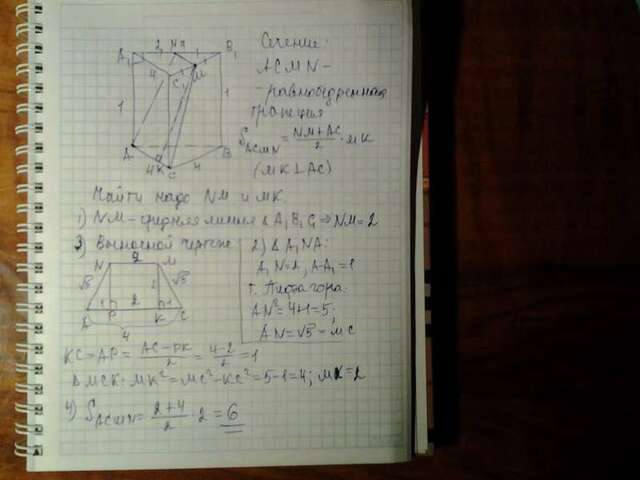 A₁ 2 N 2 B₁
4 C₁ M
1 1
A B
4 K C 4
Сечение:
ACMN –
– равнобедренная
трапеция
S_ACMN = (NM+AC)/2 · MK
(MK⊥AC)
Найти надо NM и MK.
1) NM – средняя линия Δ A₁B₁C₁ ⇒ NM = 2
3) Выносной чертёж
N 2 M
√5 √5
1 2 1
A P K C
4
2) Δ A₁NA:
A₁N=2, A-A₁=1
т. Пифагора:
AN²=4+1=5;
AN=√5=MC
KC=AP= (AC–PK)/2 = (4-2)/2 = 1
ΔMCK: MK²=MC²–KC²=5-1=4; MK=2
4) S_ACMN = (2+4)/2 · 2 = 6